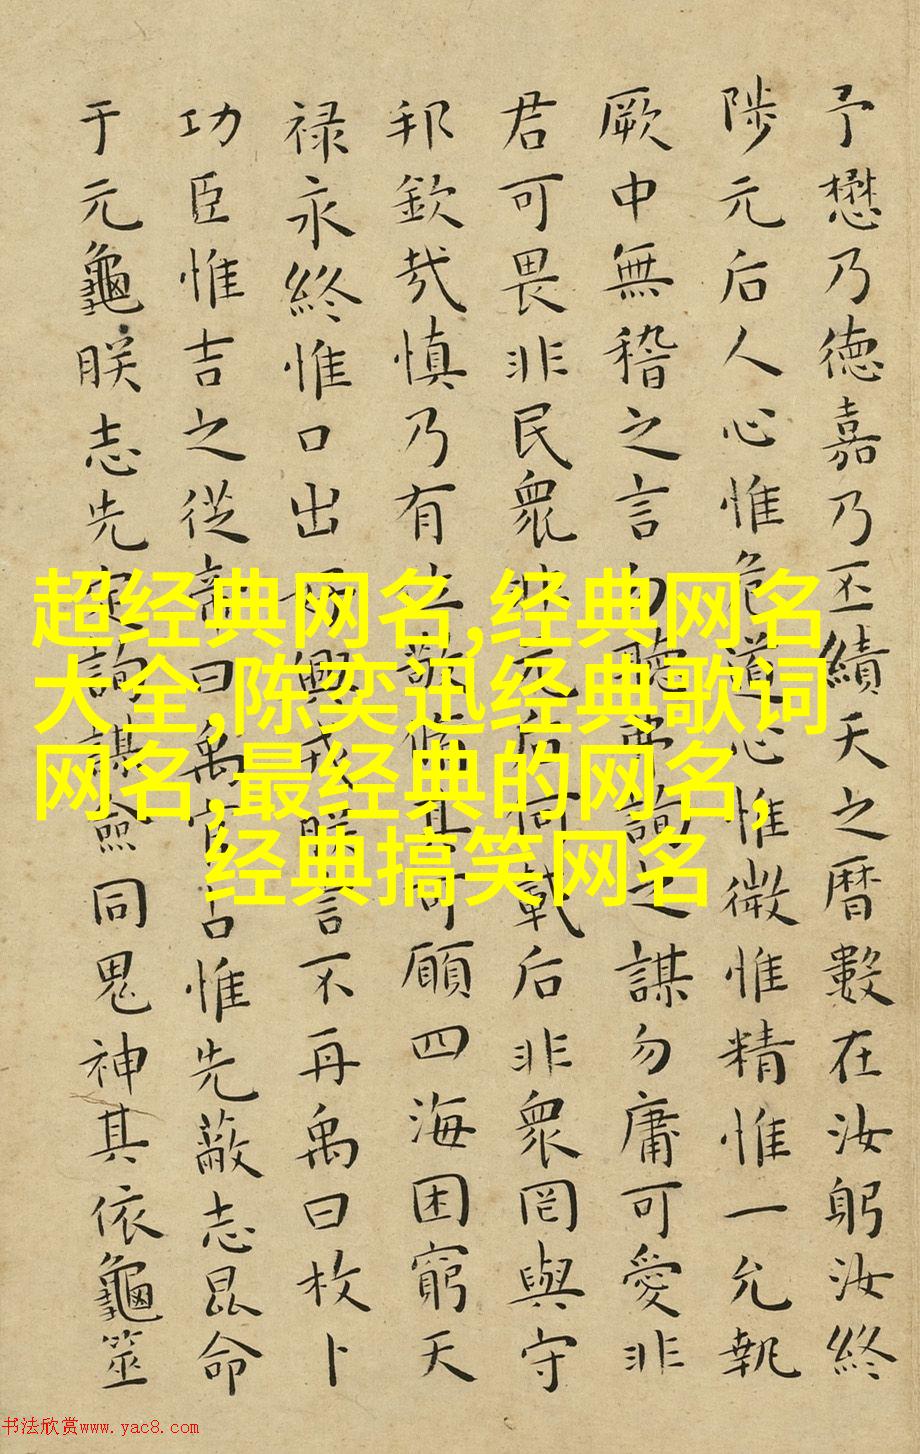 予懋乃德嘉乃丕績天之曆數在汝躬汝終
陟元后人心惟危道心惟微惟精惟一允執
厥中無稽之言勿聽弗詢之謀勿庸可愛非
君可畏非民衆非元后何戴后非衆罔與守
邦欽哉慎乃有位敬修其可願四海困窮天
禄永終惟口出好興戎朕言不再禹曰枚卜
功臣惟吉之從帝曰禹官占惟先蔽志昆命
于元龜朕志先定詢謀僉同鬼神其依龜筮
超经典网名,经典网名
大全,陈奕迅经典歌词
网名,最经典的网名,
经典搞笑网名
书法欣赏www.yac8.com